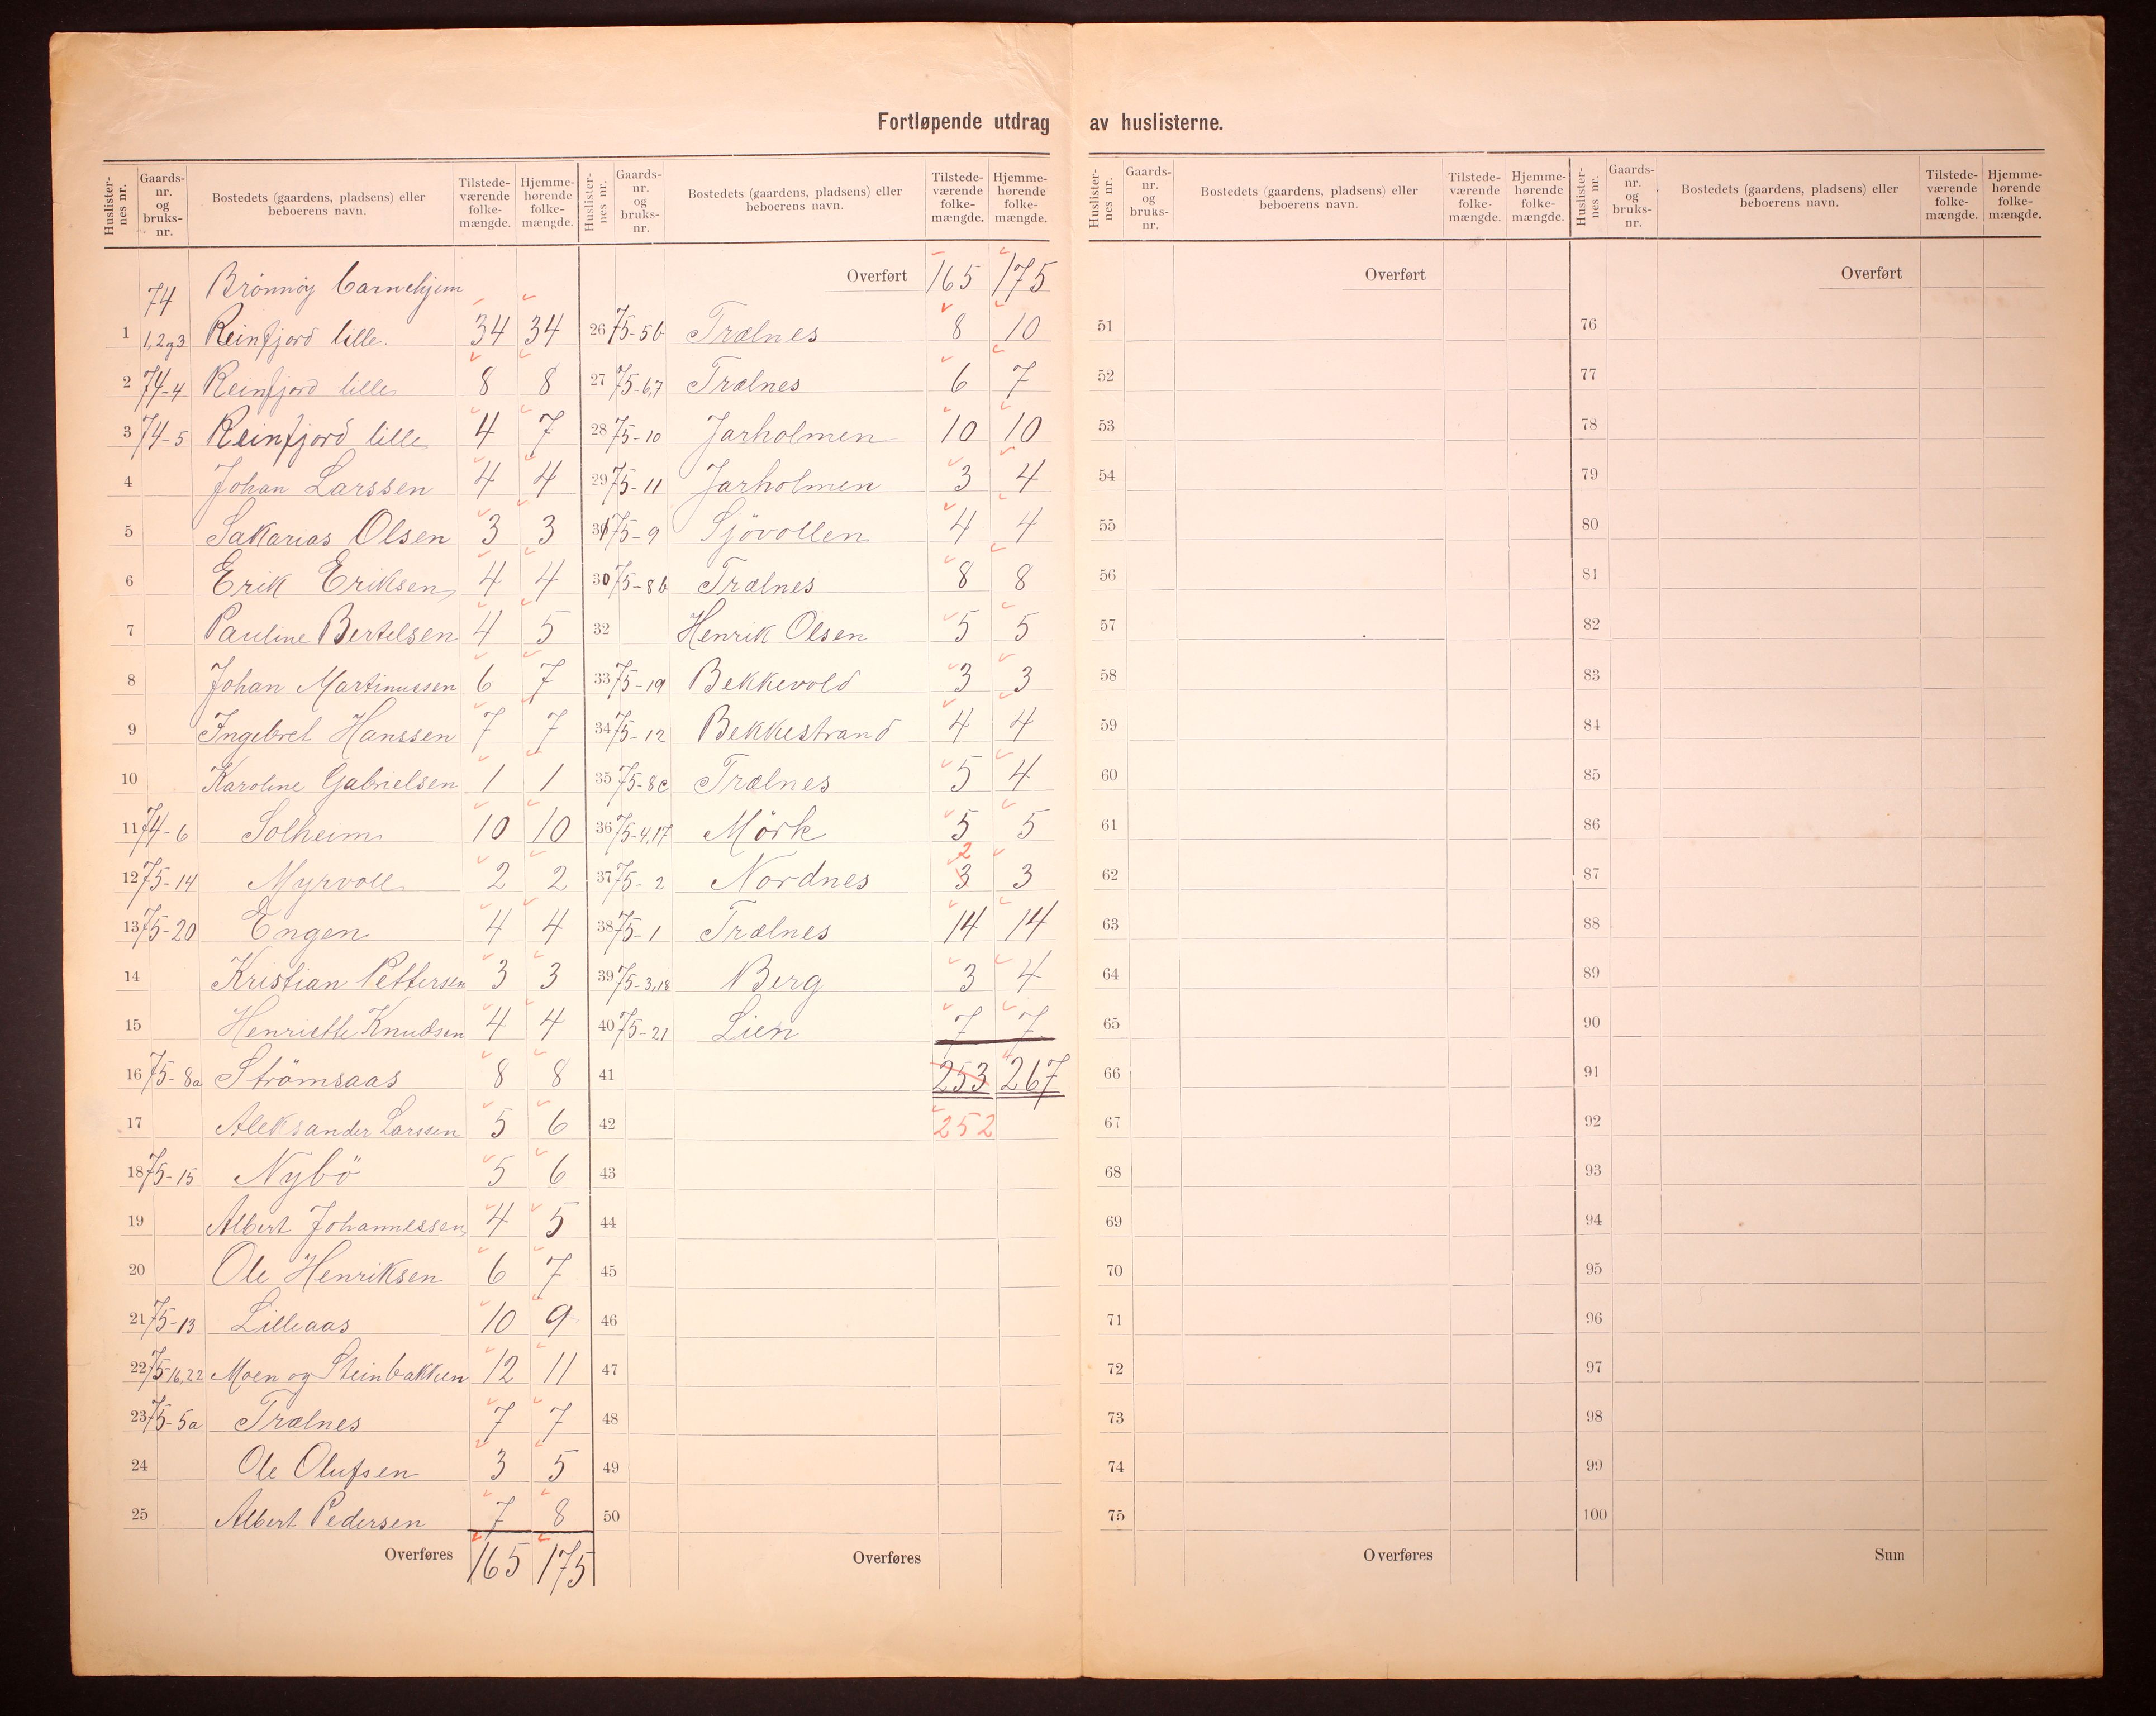 Fortløpende utdrag av huslisterne.
Huslisternes nr. Gaards-nr. og bruks-nr. Bostedets (gaardens, pladsens) eller beboerens navn. Tilstede-værende folke-mængde. Hjemme-hørende folke-mængde.
74 Brønnøy barnehjem
1 1,2og3 Reinfjord lille. 34 34
2 74-4 Reinfjord lille 8 8
3 74-5 Reinfjord lille 4 7
4 Johan Larssen 4 4
5 Sakarias Olsen 3 3
6 Erik Eriksen 4 4
7 Pauline Bertelsen 4 5
8 Johan Martinussen 6 7
9 Ingebret Hanssen 7 7
10 Karoline Gabrielsen 1 1
11 74-6 Solheim 10 10
12 75-14 Myrvoll 2 2
13 75-20 Engen 4 4
14 Kristian Pettersen 3 3
15 Henriette Knudsen 4 4
16 75-8a Strömsaas 8 8
17 Aleksander Larssen 5 6
18 75-15 Nybö 5 6
19 Albert Johannessen 4 5
20 Ole Henriksen 6 7
21 75-13 Lilleaas 10 9
22 75-16,22 Moen og Steinbakken 12 11
23 75-5a Trælnes 7 7
24 Ole Olufsen 3 5
25 Albert Pedersen 7 8
Overføres 165 175
Huslisternes nr. Gaards-nr. og bruks-nr. Bostedets (gaardens, pladsens) eller beboerens navn. Tilstede-værende folke-mængde. Hjemme-hørende folke-mængde.
Overført 165 175
26 75-5b Trælnes 8 10
27 75-6,7 Trælnes 6 7
28 75-10 Jarholmen 10 10
29 75-11 Jarholmen 3 4
31 75-9 Sjövollen 4 4
30 75-8b Trælnes 8 8
32 Henrik Olsen 5 5
33 75-19 Bekkevold 3 3
34 75-12 Bekkestrand 4 4
35 75-8c Trælnes 5 4
36 75-4,17 Mörk 5 5
2
37 75-2 Nordnes 3 3
38 75-1 Trælnes 14 14
39 75-3,18 Berg 3 4
40 75-21 Lien 7 7
41 253 267
42 252
43
44
45
46
47
48
49
50
Overføres
Huslisternes nr. Gaards-nr. og bruks-nr. Bostedets (gaardens, pladsens) eller beboerens navn. Tilstede-værende folke-mængde. Hjemme-hørende folke-mængde.
Overført
51
52
53
54
55
56
57
58
59
60
61
62
63
64
65
66
67
68
69
70
71
72
73
74
75
Overføres
Huslisternes nr. Gaards-nr. og bruks-nr. Bostedets (gaardens, pladsens) eller beboerens navn. Tilstede-værende folke-mængde. Hjemme-hørende folke-mængde.
Overført
76
77
78
79
80
81
82
83
84
85
86
87
88
89
90
91
92
93
94
95
96
97
98
99
100
Sum